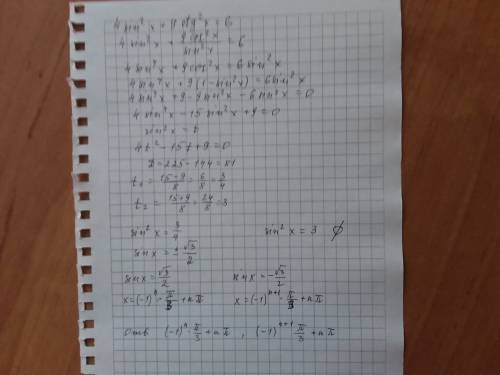 4 sin² x + 9 ctg² x = 6
4 sin² x + 9 cos² x / sin² x = 6
4 sin⁴ x + 9 cos² x = 6 sin² x
4 sin⁴ x + 9 (1 - sin² x) = 6 sin² x
4 sin⁴ x + 9 - 9 sin² x - 6 sin² x = 0
4 sin⁴ x - 15 sin² x + 9 = 0
sin² x = t
4t² - 15t + 9 = 0
D = 225 - 144 = 81
t₁ = (15-9)/8 = 6/8 = 3/4
t₂ = (15+9)/8 = 24/8 = 3
sin² x = 3/4 sin² x = 3 ∅
sin x = ± √3/2
sin x = √3/2 sin x = -√3/2
x = (-1)ⁿ · π/3 + nπ x = (-1)ⁿ⁺¹ · π/3 + nπ
Отв (-1)ⁿ · π/3 + nπ , (-1)ⁿ⁺¹ π/3 + nπ